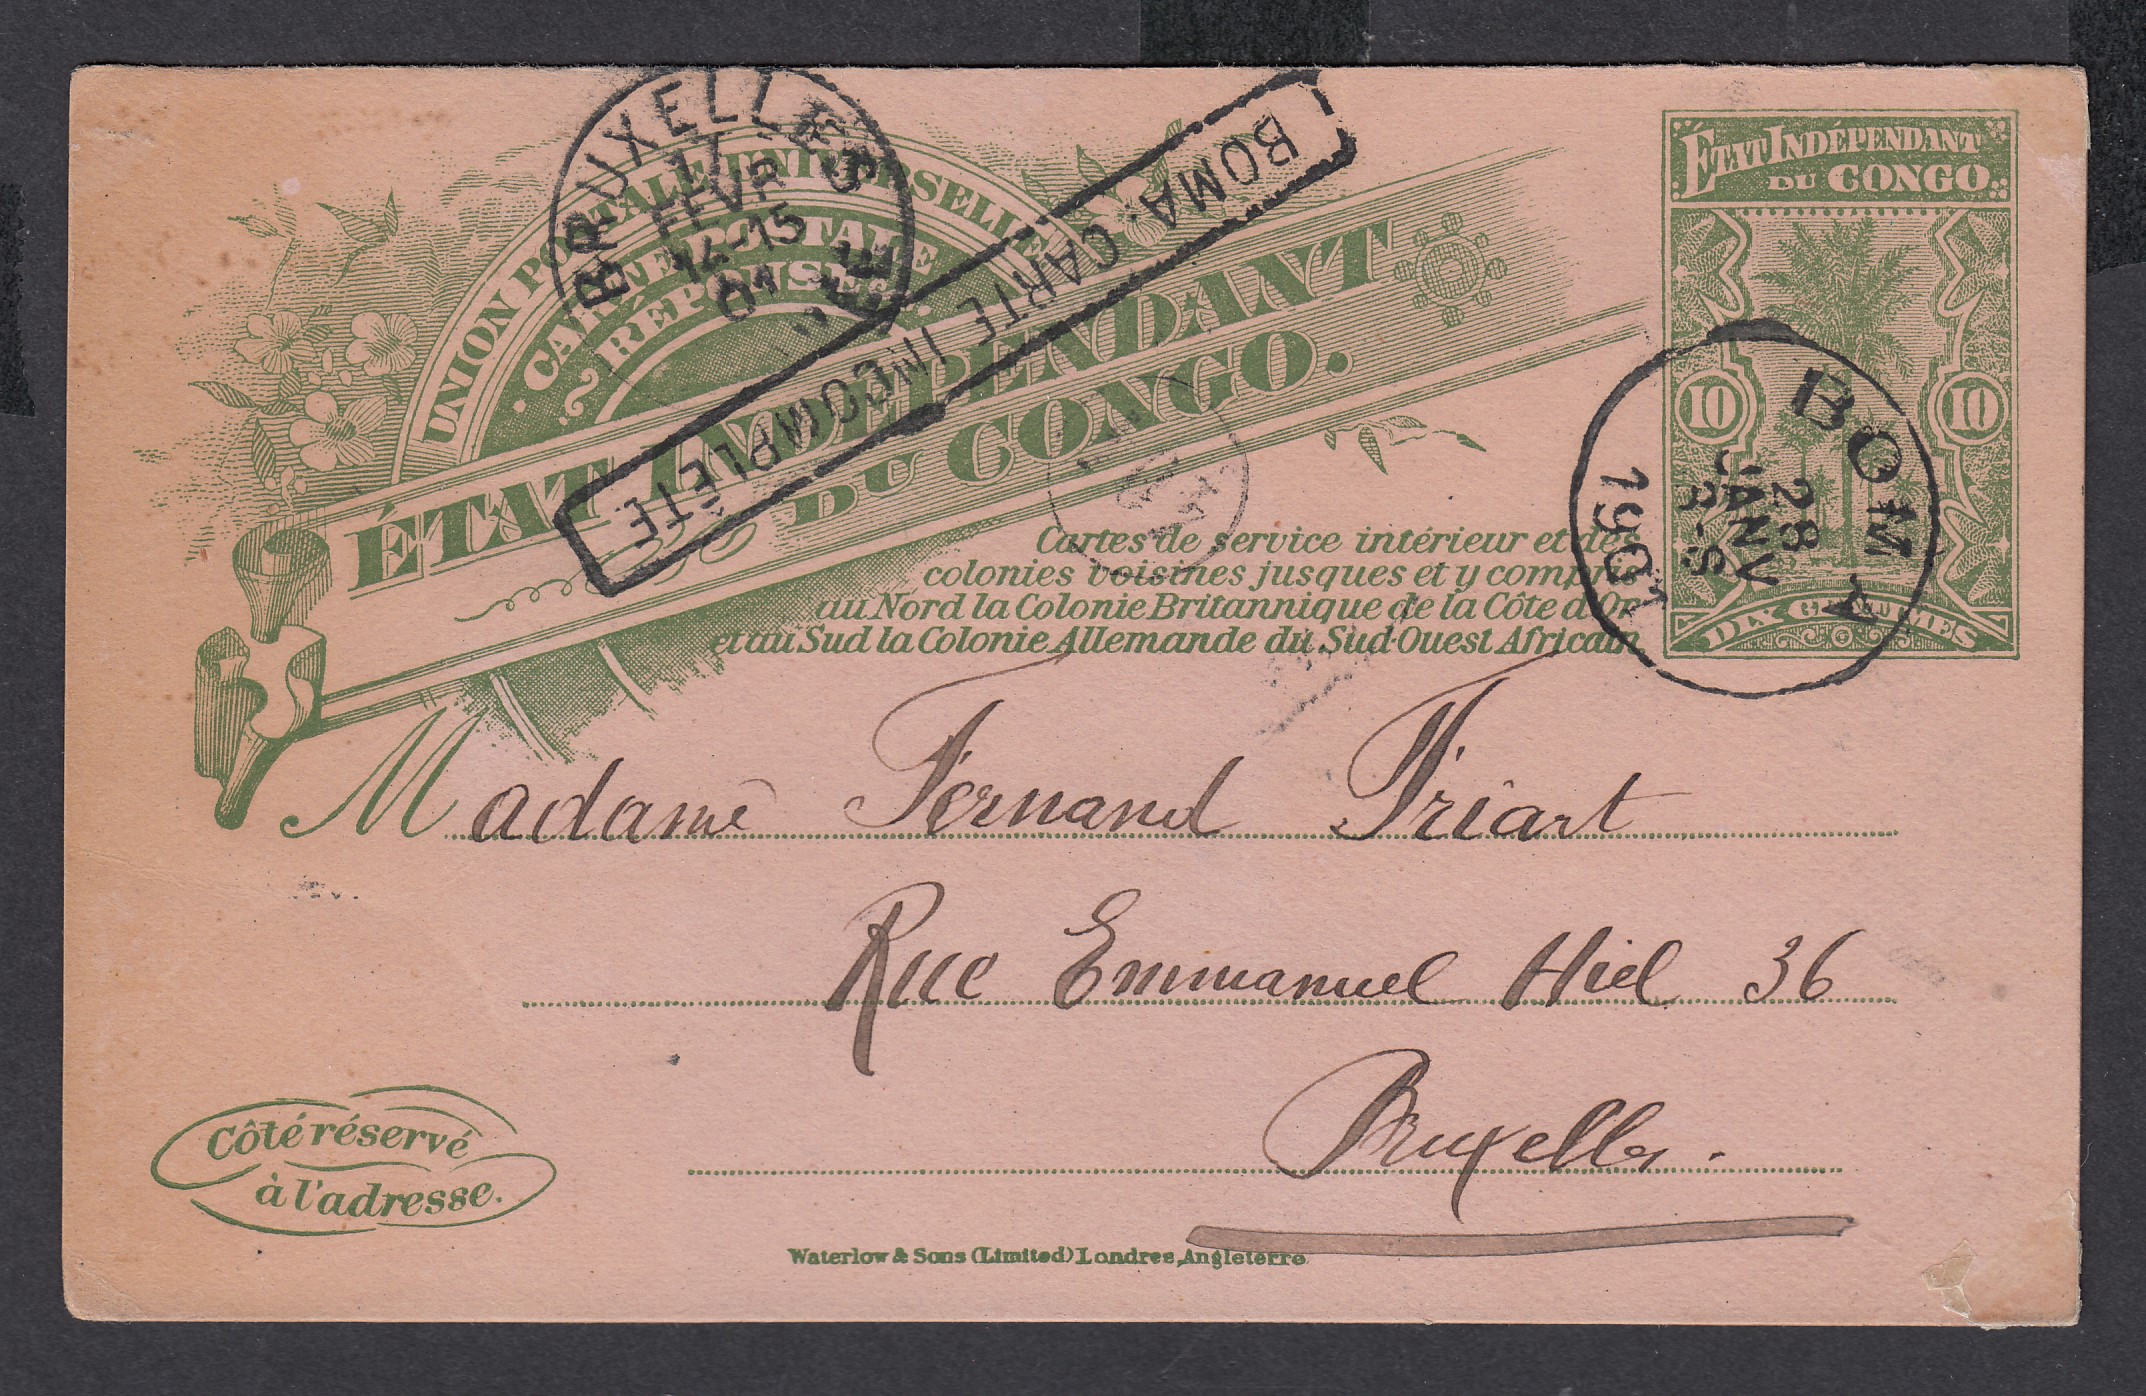 UNION POSTALE UNIVERSELLE
CARTE POSTALE
RÉPONSE
ÉTAT INDÉPENDANT
DU CONGO.
BRUXELLES
17
FEVR
14-15
01
BOMA. CARTE INCOMPLÈTE
ÉTAT INDÉPENDANT
DU CONGO
10 10
DIX CENTIMES
BOMA
28
JANV
1901
Cartes de service intérieur et des
colonies voisines jusques et y compris
au Nord la Colonie Britannique de la Côte d'Or
et au Sud la Colonie Allemande du Sud-Ouest Africain.
Madame Fernand Friart
Rue Emmanuel Hiel 36
Bruxelles.
Côté réservé
à l'adresse.
Waterlow & Sons (Limited) Londres, Angleterre